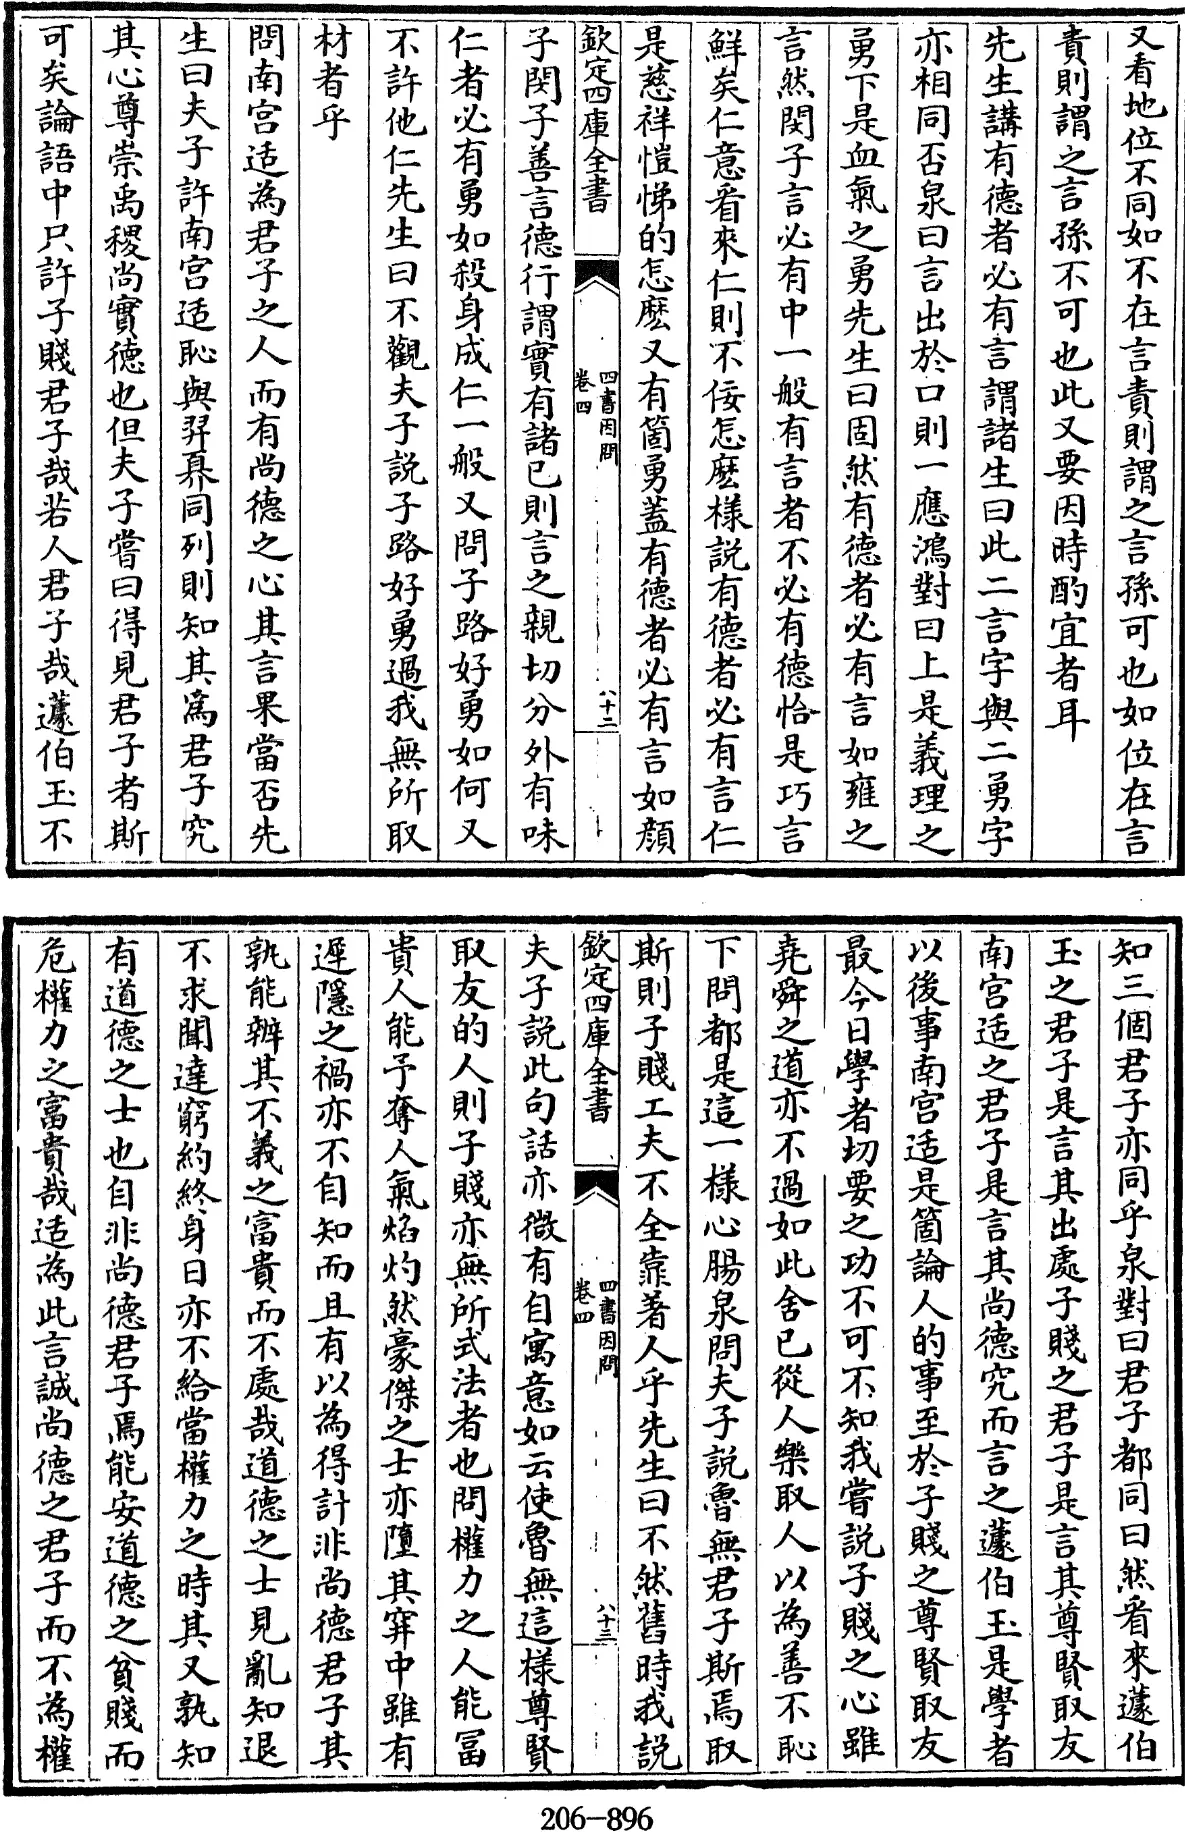 又看地位不同如不在言責則謂之言孫可也如位在言
責則謂之言孫不可也此又要因時酌宜者耳
先生講有德者必有言謂諸生曰此二言字與二勇字
亦相同否泉曰言出於口則一應鴻對曰上是義理之
勇下是血氣之勇先生曰固然有德者必有言如雍之
言然閔子言必有中一般有言者不必有德恰是巧言
鮮矣仁意看來仁則不佞怎麽様説有德者必有言仁
是慈祥愷悌的怎麽又有箇勇蓋有德者必有言如顔
欽定四庫全書
四書因問
卷四
八十二
子閔子善言德行謂實有諸已則言之親切分外有味
仁者必有勇如殺身成仁一般又問子路好勇如何又
不許他仁先生曰不觀夫子説子路好勇過我無所取
材者乎
問南宫适為君子之人而有尚德之心其言果當否先
生曰夫子許南宫适恥與羿奡同列則知其為君子究
其心尊崇禹稷尚實德也但夫子嘗曰得見君子者斯
可矣論語中只許子賤君子哉若人君子哉蘧伯玉不
知三個君子亦同乎泉對曰君子都同曰然看來蘧伯
玉之君子是言其出處子賤之君子是言其尊賢取友
南宫适之君子是言其尚德究而言之蘧伯玉是學者
以後事南宫适是箇論人的事至於子賤之尊賢取友
最今日學者切要之功不可不知我嘗説子賤之心雖
堯舜之道亦不過如此舍已從人樂取人以為善不恥
下問都是這一樣心腸泉問夫子説魯無君子斯焉取
斯則子賤工夫不全靠著人乎先生曰不然舊時我説
欽定四庫全書
四書因問
卷四
八十三
夫子説此句話亦微有自寓意如云使魯無這樣尊賢
取友的人則子賤亦無所式法者也問權力之人能冨
貴人能予奪人氣焰灼然豪傑之士亦墮其穽中雖有
遲隱之禍亦不自知而且有以為得計非尚德君子其
孰能辨其不義之富貴而不處哉道德之士見亂知退
不求聞達窮約終身日亦不給當權力之時其又孰知
有道德之士也自非尚德君子焉能安道德之貧賤而
危權力之富貴哉适為此言誠尚德之君子而不為權
206-896